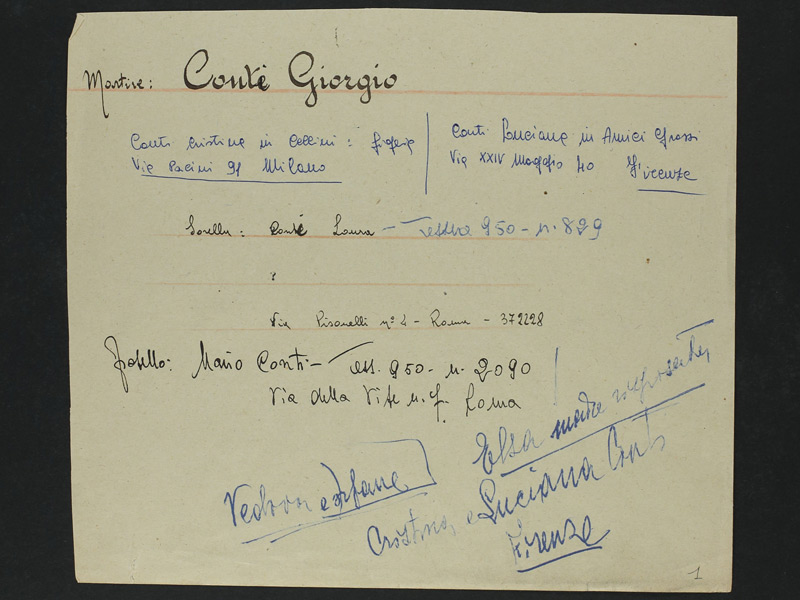 Martire: Conti Giorgio
Conti Cristina in Cellini: figlia
Via Pacini 91 Milano
Conti Luciana in Amici Grossi
Via XXIV Maggio 40 Firenze
Sorella: Conti Laura – Tessera 950 – n. 829
?
Via Pisanelli nº 4 – Roma – 372228
Fratello: Mario Conti – Tess. 950 – n. 2090
Via della Vite n. 7. Roma
Elsa madre risposata
Vedova e orfane
Cristina e Luciana Conti
Firenze
1